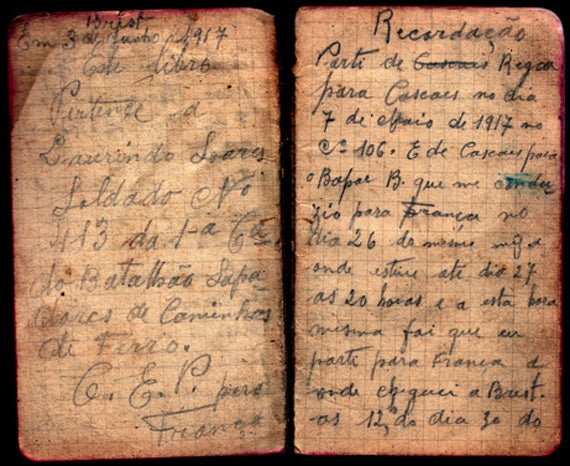 Brest
Em 3 de Junho de 1917
Este libro
Pertence a
Laurindo Soares
Soldado Nº
413 da 1-a Cª
do Batalhão Sapa-
dores de Caminhos
de Ferro.
C. E. P. pero
França
Recordação
Parti de Cascais Regoa
para Cascaes no dia
7 de Maio de 1917 no
Cº 106. E de Cascaes para
o Bapor B. que me condu
zio para França no
dia 26 do mesmo mez
onde estive até dia 27
as 20 horas e a esta hora
mesma foi que eu
parti para França a
onde cheguei a Brest.
as 12,5 do dia 30 do